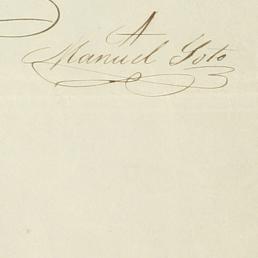 A
Manuel Soto